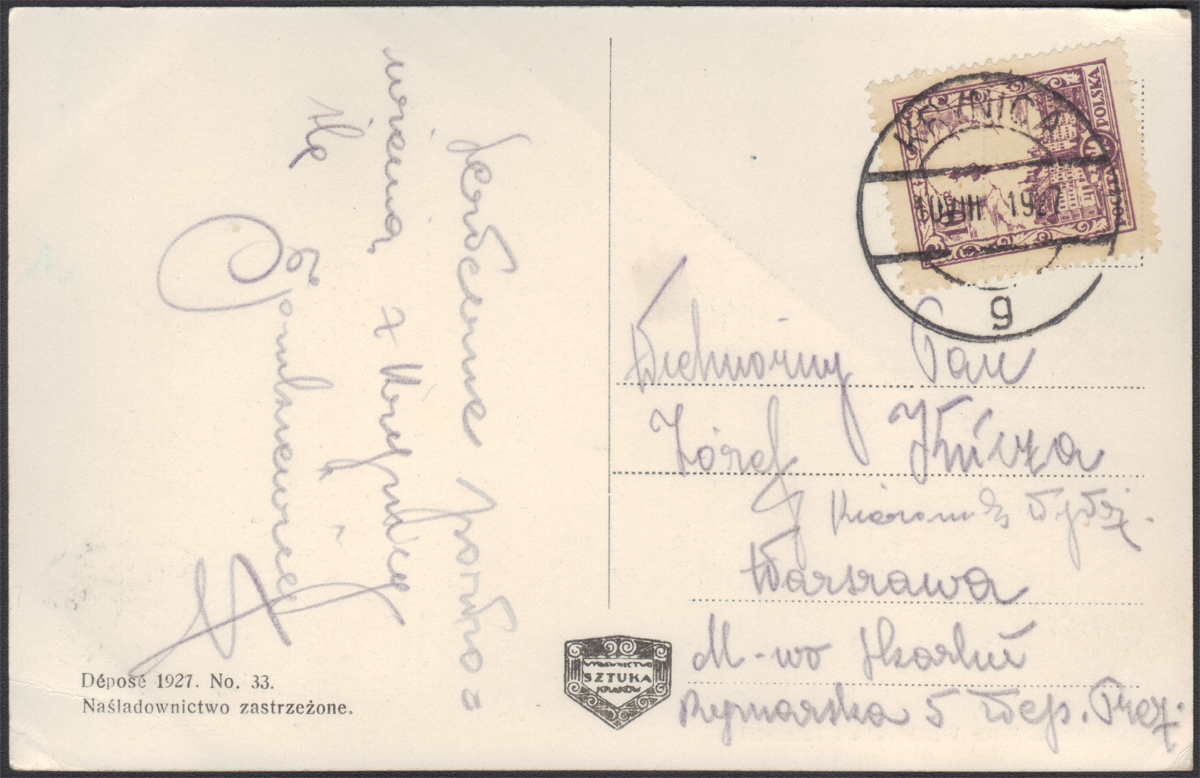 Serdeczne pozdro-
wienia z Krynicy
śle
KRYNICA
10 VIII 1927
g
POCZTA POLSKA
Wielmożny Pan
Józef Kńcza
Kierownik Wydz.
Warszawa
M-wo Skarbu
Rymarska 5 Dep. Prez.
WYDAWNICTWO
SZTUKA
KRAKÓW
Déposé 1927. No. 33.
Naśladownictwo zastrzeżone.